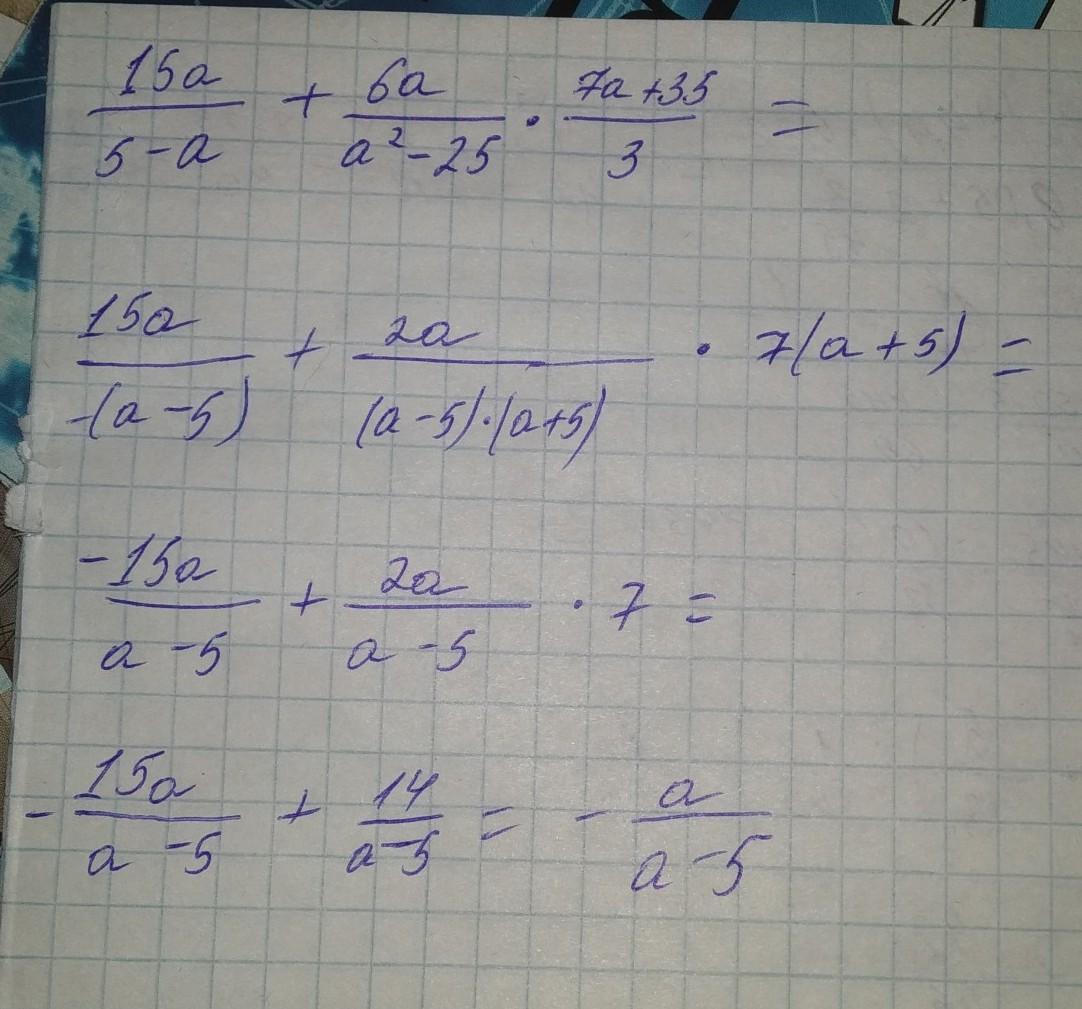 15a/(5-a) + 6a/(a²-25) · (7a+35)/3 =
15a/(-(a-5)) + 2a/((a-5)·(a+5)) · 7(a+5) =
-15a/(a-5) + 2a/(a-5) · 7 =
- 15a/(a-5) + 14/(a-5) = - a/(a-5)